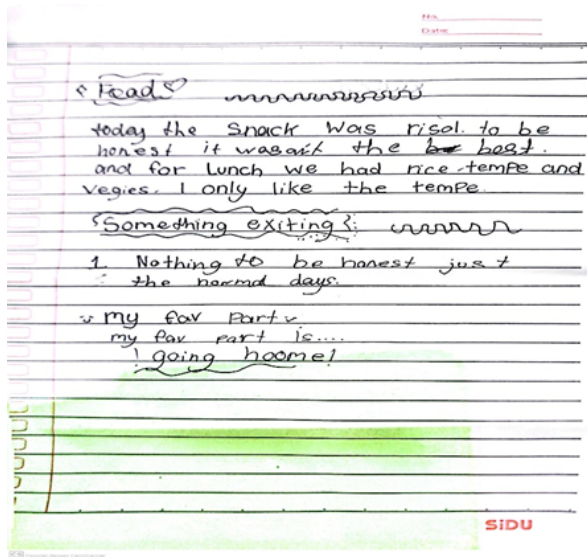 No.
Date:
Food
today the snack was risol. to be
honest it wasn't the best.
and for lunch we had rice tempe and
vegies. I only like the tempe.
Something exiting
1. Nothing to be honest just
the normal days.
my fav part
my fav part is....
! going hoome!
SiDU